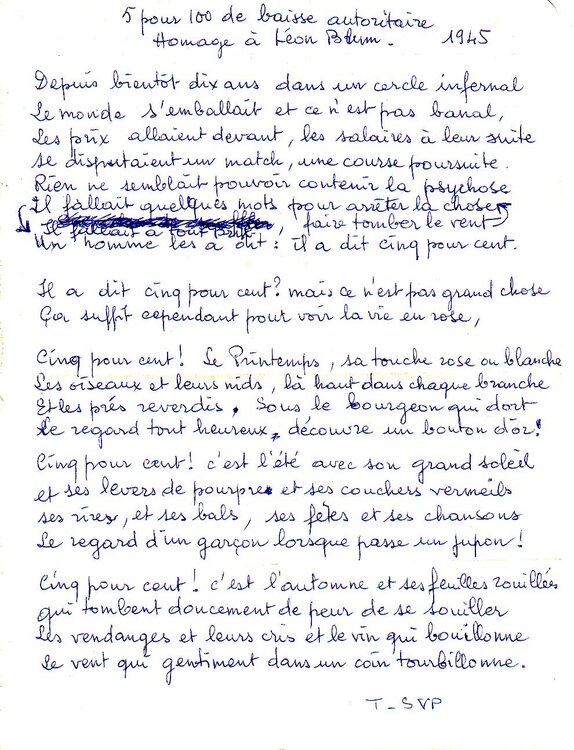 5 pour 100 de baisse autoritaire
Homage à Léon Blum. 1945
Depuis bientôt dix ans dans un cercle infernal
Le monde s'emballait et ce n'est pas banal,
Les prix allaient devant, les salaires à leur suite
se disputaient un match, une course poursuite.
Rien ne semblait pouvoir contenir la psychose
Il fallait quelques mots pour arrêter la chose
Il fallait à tout prix, faire tomber le vent
Un homme les a dit : il a dit cinq pour cent.
Il a dit cinq pour cent? mais ce n'est pas grand chose
Ça suffit cependant pour voir la vie en rose,
Cinq pour cent! Le Printemps, sa touche rose ou blanche
Les oiseaux et leurs nids, là haut dans chaque branche
Et les prés reverdis. Sous le bourgeon qui dort
Le regard tout heureux, découvre un bouton d'or!
Cinq pour cent! c'est l'été avec son grand soleil
et ses levers de pourpre et ses couchers vermeils
ses rires, et ses bals, ses fêtes et ses chansons
Le regard d'un garçon lorsque passe un jupon!
Cinq pour cent! c'est l'automne et ses feuilles rouillées
qui tombent doucement de peur de se souiller
Les vendanges et leurs cris et le vin qui bouillonne
Le vent qui gentiment dans un coin tourbillonne.
T-SVP